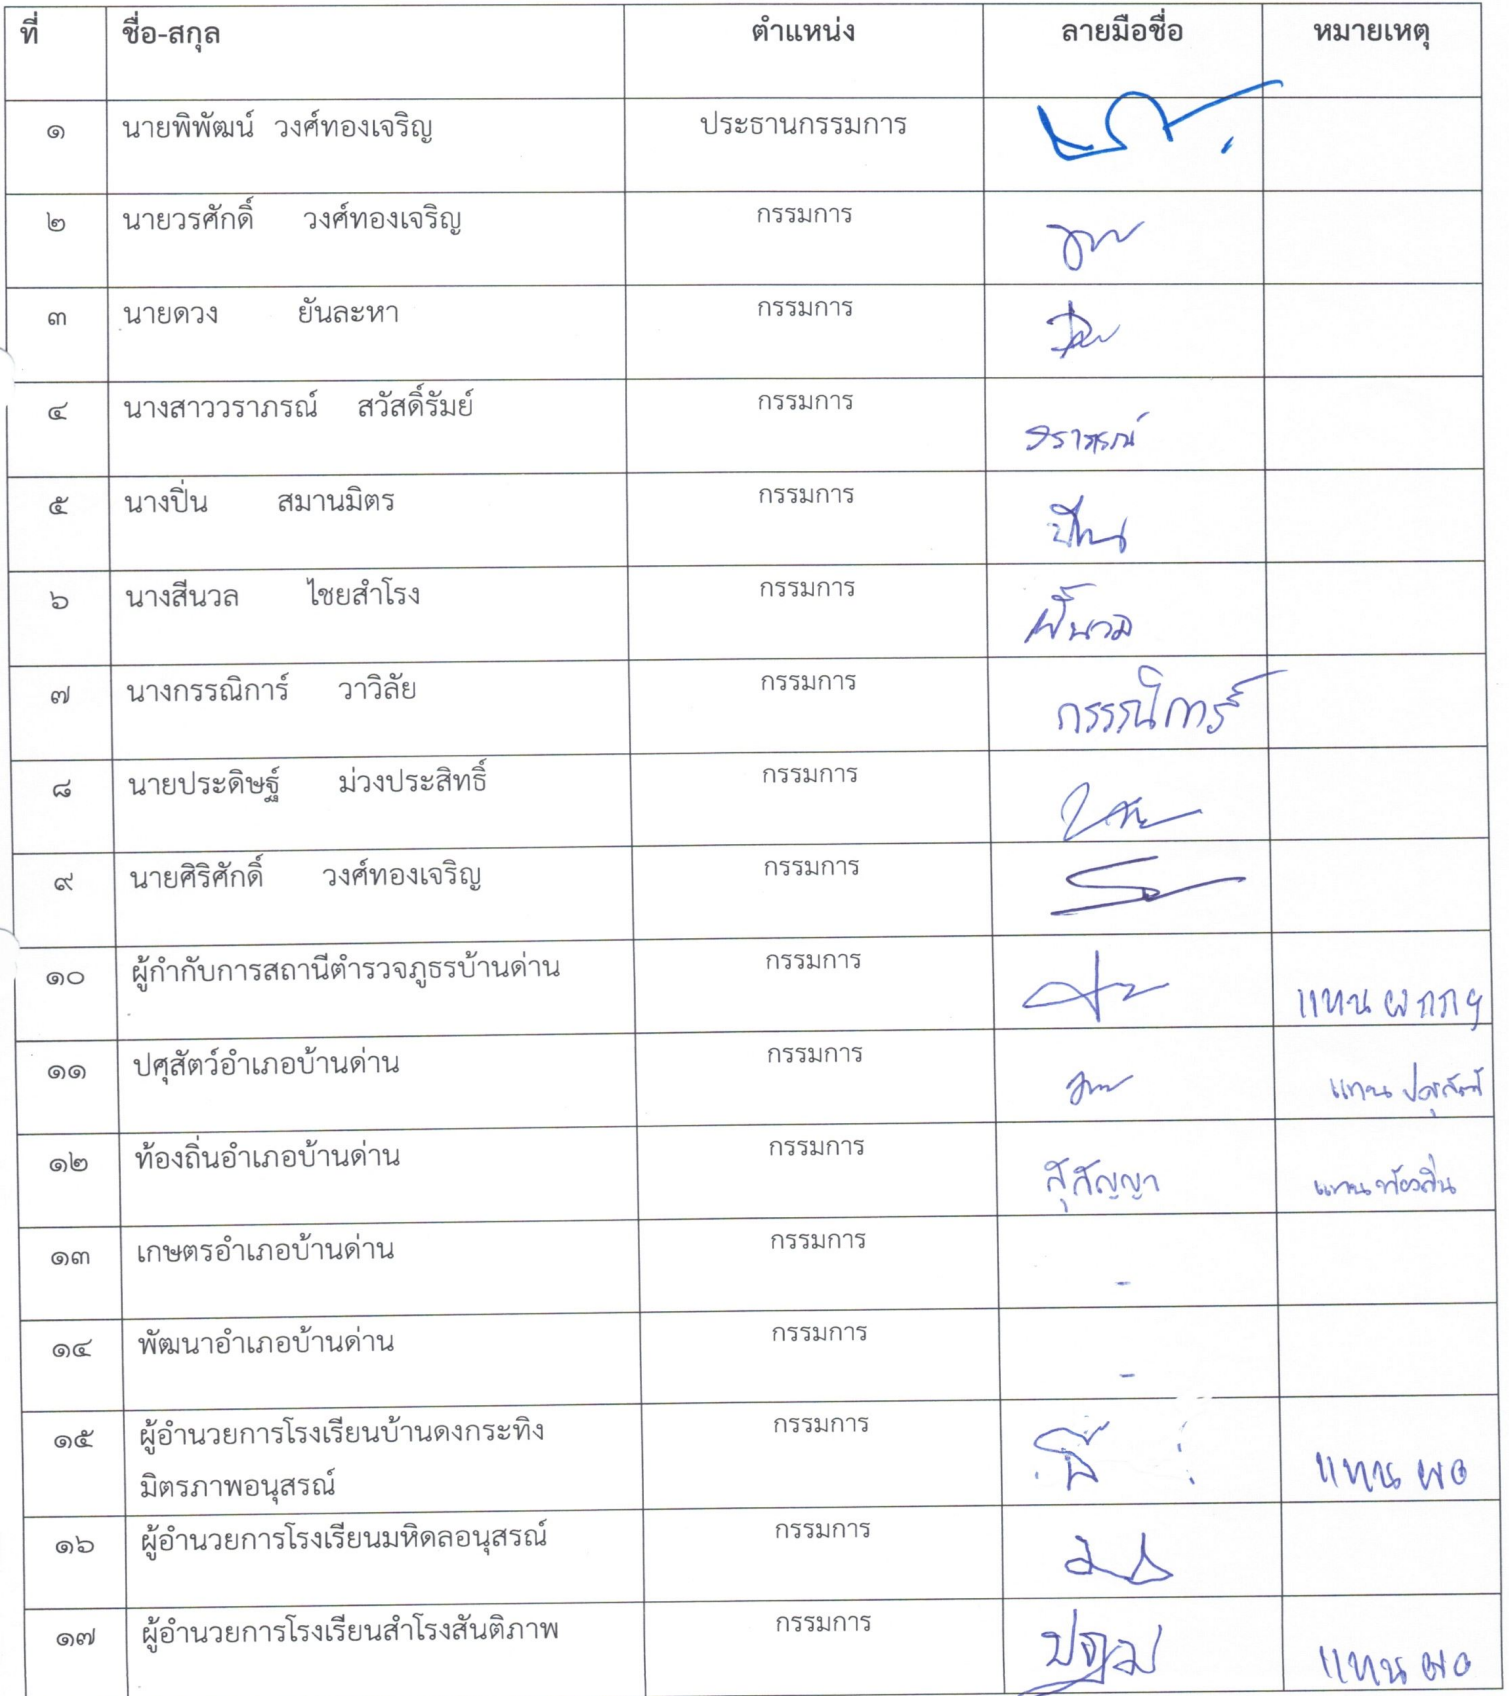 ที่ ชื่อ-สกุล ตำแหน่ง ลายมือชื่อ หมายเหตุ
๑ นายพิพัฒน์ วงศ์ทองเจริญ ประธานกรรมการ
๒ นายวรศักดิ์ วงศ์ทองเจริญ กรรมการ
๓ นายดวง ยันละหา กรรมการ
๔ นางสาววราภรณ์ สวัสดิ์รัมย์ กรรมการ วราภรณ์
๕ นางปิ่น สมานมิตร กรรมการ
๖ นางสีนวล ไชยสำโรง กรรมการ
๗ นางกรรณิการ์ วาวิลัย กรรมการ กรรณิการ์
๘ นายประดิษฐ์ ม่วงประสิทธิ์ กรรมการ
๙ นายศิริศักดิ์ วงศ์ทองเจริญ กรรมการ
๑๐ ผู้กำกับการสถานีตำรวจภูธรบ้านด่าน กรรมการ แทน ผกกฯ
๑๑ ปศุสัตว์อำเภอบ้านด่าน กรรมการ แทน ปศุสัตว์
๑๒ ท้องถิ่นอำเภอบ้านด่าน กรรมการ สุสัญญา แทนท้องถิ่น
๑๓ เกษตรอำเภอบ้านด่าน กรรมการ -
๑๔ พัฒนาอำเภอบ้านด่าน กรรมการ -
๑๕ ผู้อำนวยการโรงเรียนบ้านดงกระทิง กรรมการ แทน ผอ
มิตรภาพอนุสรณ์
๑๖ ผู้อำนวยการโรงเรียนมหิดลอนุสรณ์ กรรมการ
๑๗ ผู้อำนวยการโรงเรียนสำโรงสันติภาพ กรรมการ แทน ผอ